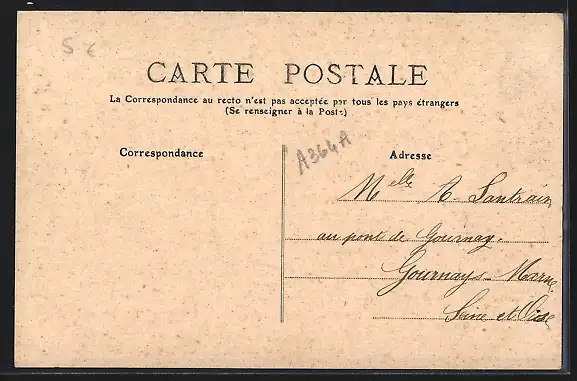 5 €
CARTE POSTALE
La Correspondance au recto n'est pas acceptée par tous les pays étrangers
(Se renseigner à la Poste)
A364A
Correspondance
Adresse
Melle A. Lantrain
au pont de Gournay.
Gournay s. Marne
Seine et Oise